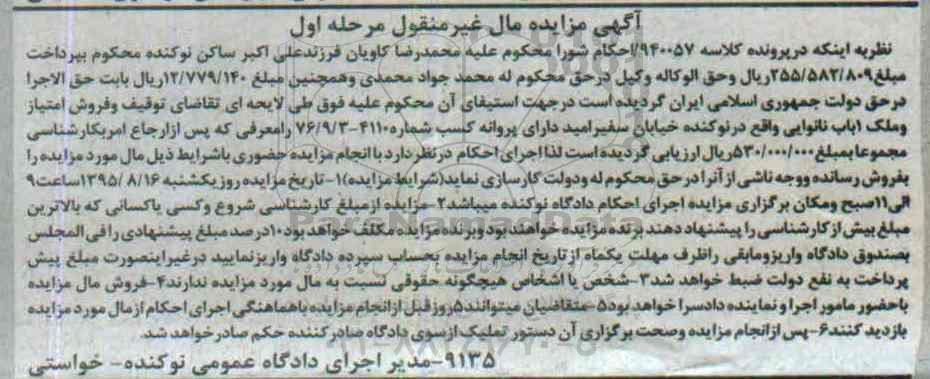 آگهی مزایده مال غیرمنقول مرحله اول
نظربه اینکه درپرونده کلاسه ۹۴۰۰۵۷/احکام شورا محکوم علیه محمدرضا کاویان فرزندعلی اکبر ساکن نوکنده محکوم بپرداخت
مبلغ۲۵۵/۵۸۲/۸۰۹ریال وحق الوکاله وکیل درحق محکوم له محمد جواد محمدی وهمچنین مبلغ ۱۲/۷۷۹/۱۴۰ریال بابت حق الاجرا
درحق دولت جمهوری اسلامی ایران گردیده است درجهت استیفای آن محکوم علیه فوق طی لایحه ای تقاضای توقیف وفروش امتیاز
وملک ۱باب نانوایی واقع درنوکنده خیابان سفیرامید دارای پروانه کسب شماره۴۱۱۰-۷۶/۹/۳ رامعرفی که پس ازارجاع امربکارشناسی
مجموعا بمبلغ۵۳۰/۰۰۰/۰۰۰ریال ارزیابی گردیده است لذا اجرای احکام درنظردارد با انجام مزایده حضوری باشرایط ذیل مال مورد مزایده را
بفروش رسانده ووجه ناشی از آنرا درحق محکوم له ودولت کارسازی نماید(شرایط مزایده)۱-تاریخ مزایده روزیکشنبه ۱۳۹۵/۸/۱۶ساعت۹
الی۱۱صبح ومکان برگزاری مزایده اجرای احکام دادگاه نوکنده میباشد۲-مزایده ازمبلغ کارشناسی شروع وکسی یاکسانی که بالاترین
مبلغ بیش ازکارشناسی را پیشنهاد دهند برنده مزایده خواهند بود وبرنده مزایده مکلف خواهد بود۱۰درصد مبلغ پیشنهادی رافی المجلس
بصندوق دادگاه واریزومابقی راظرف مهلت یکماه ازتاریخ انجام مزایده بحساب سپرده دادگاه واریزنمایید درغیراینصورت مبلغ پیش
پرداخت به نفع دولت ضبط خواهد شد۳-شخص یا اشخاص هیچگونه حقوقی نسبت به مال مورد مزایده ندارند۴-فروش مال مزایده
باحضور مامور اجرا و نماینده دادسرا خواهد بود۵-متقاضیان میتوانند۵روزقبل ازانجام مزایده باهماهنگی اجرای احکام ازمال مورد مزایده
بازدید کنند۶-پس ازانجام مزایده وصحت برگزاری آن دستور تملیک ازسوی دادگاه صادرکننده حکم صادرخواهد شد.
۹۱۳۵-مدیر اجرای دادگاه عمومی نوکنده- خواستی
ParsNamadData